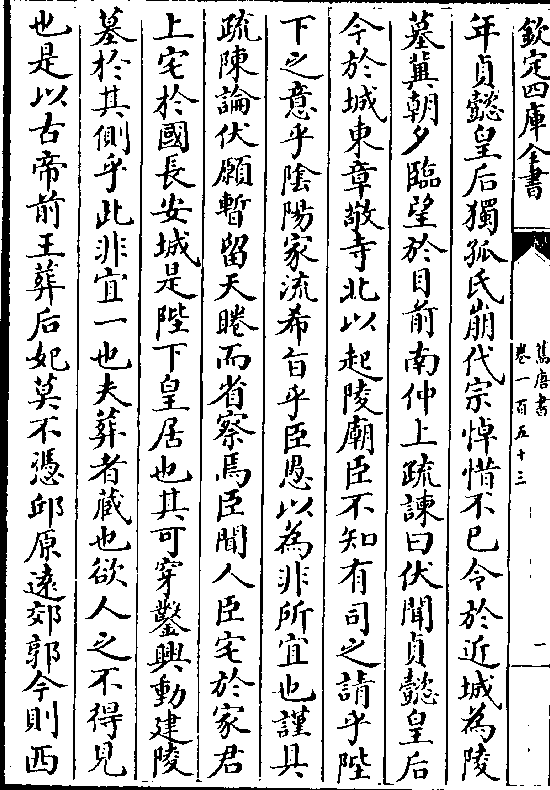 欽定四庫全書
舊唐書
卷一百五十三
二
年貞懿皇后獨孤氏崩代宗悼惜不已令於近城為陵
墓冀朝夕臨望於目前南仲上疏諫曰伏聞貞懿皇后
今於城東章敬寺北以起陵廟臣不知有司之請乎陛
下之意乎陰陽家流希旨乎臣愚以為非所宜也謹具
疏陳論伏願暫留天睠而省察焉臣聞人臣宅於家君
上宅於國長安城是陛下皇居也其可穿鑿興動建陵
墓於其側乎此非宜一也夫葬者藏也欲人之不得見
也是以古帝前王葬后妃莫不憑邱原遠郊郭今則西